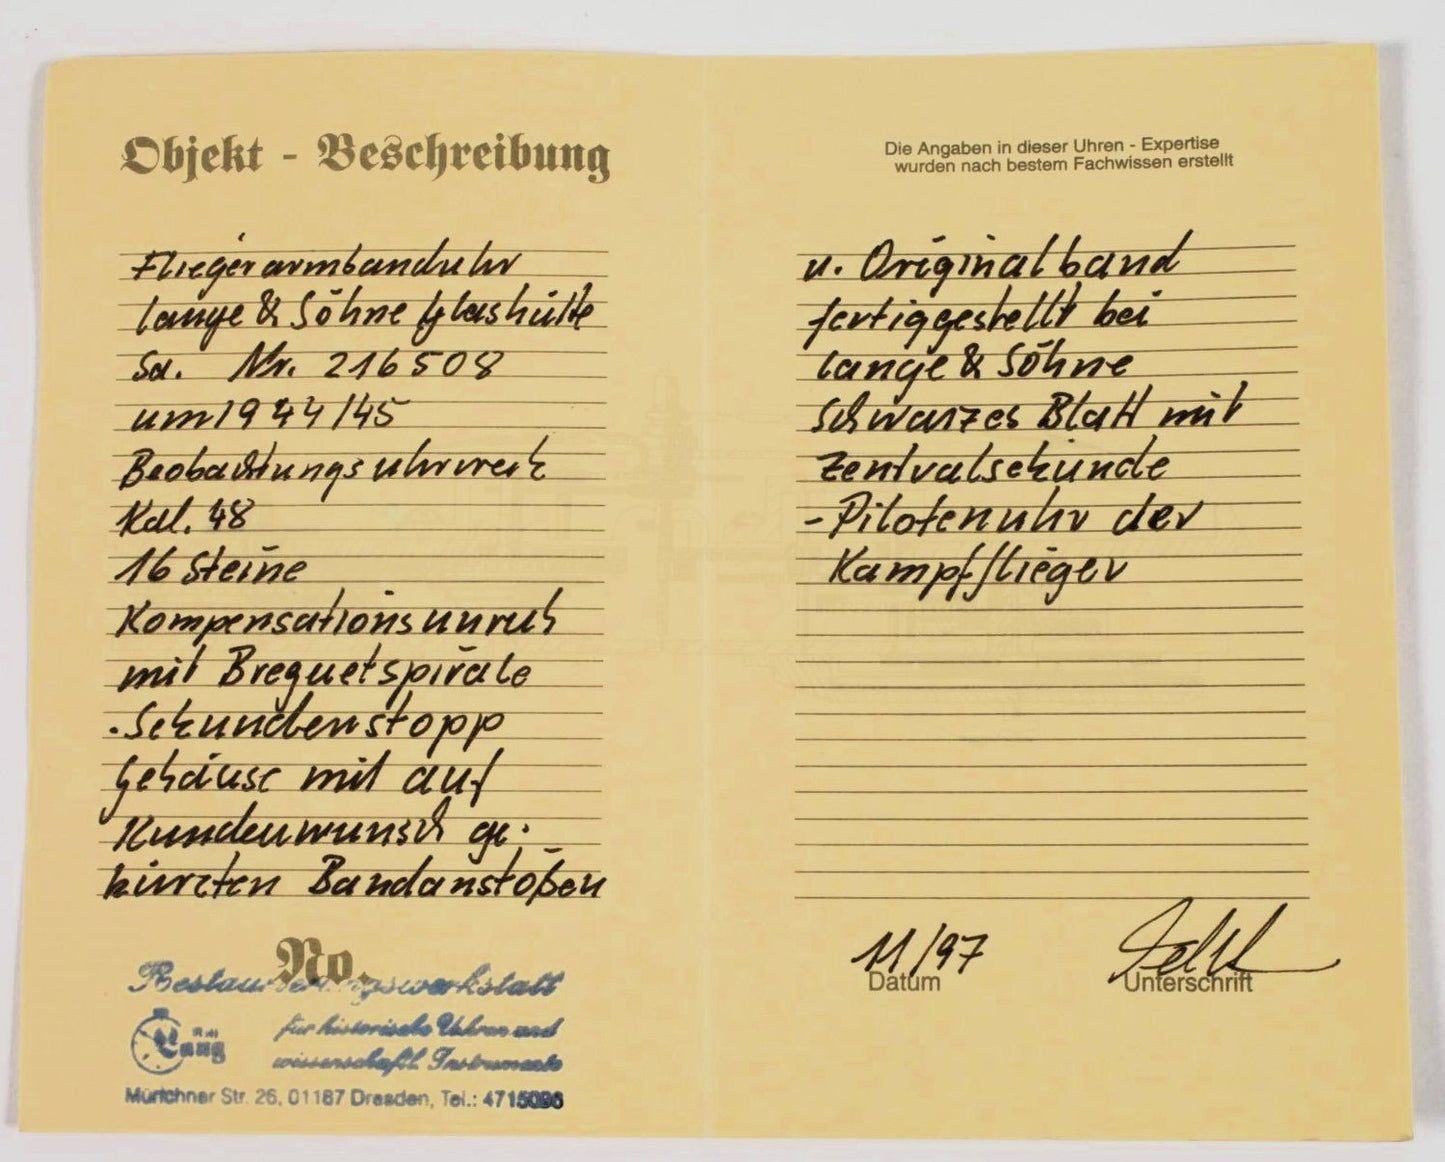 Objekt - Beschreibung
Fliegerarmbanduhr
Lange & Söhne Glashütte
Sa. Nr. 216508
um 1944/45
Beobachtungsuhrwerk
Kal. 48
16 Steine
Kompensationsunruh
mit Breguetspirale
·Sekundenstopp
Gehäuse mit auf
Kundenwunsch ge·
kürzten Bandanstößen
No.
Restaurierungswerkstatt
für historische Uhren und
Lang
wissenschaftl. Instrumente
Münchner Str. 26, 01187 Dresden, Tel.: 4715096
Die Angaben in dieser Uhren - Expertise
wurden nach bestem Fachwissen erstellt
u. Originalband
fertiggestellt bei
Lange & Söhne
Schwarzes Blatt mit
Zentralsekunde
-Pilotenuhr der
Kampfflieger
11/97
Datum
Unterschrift